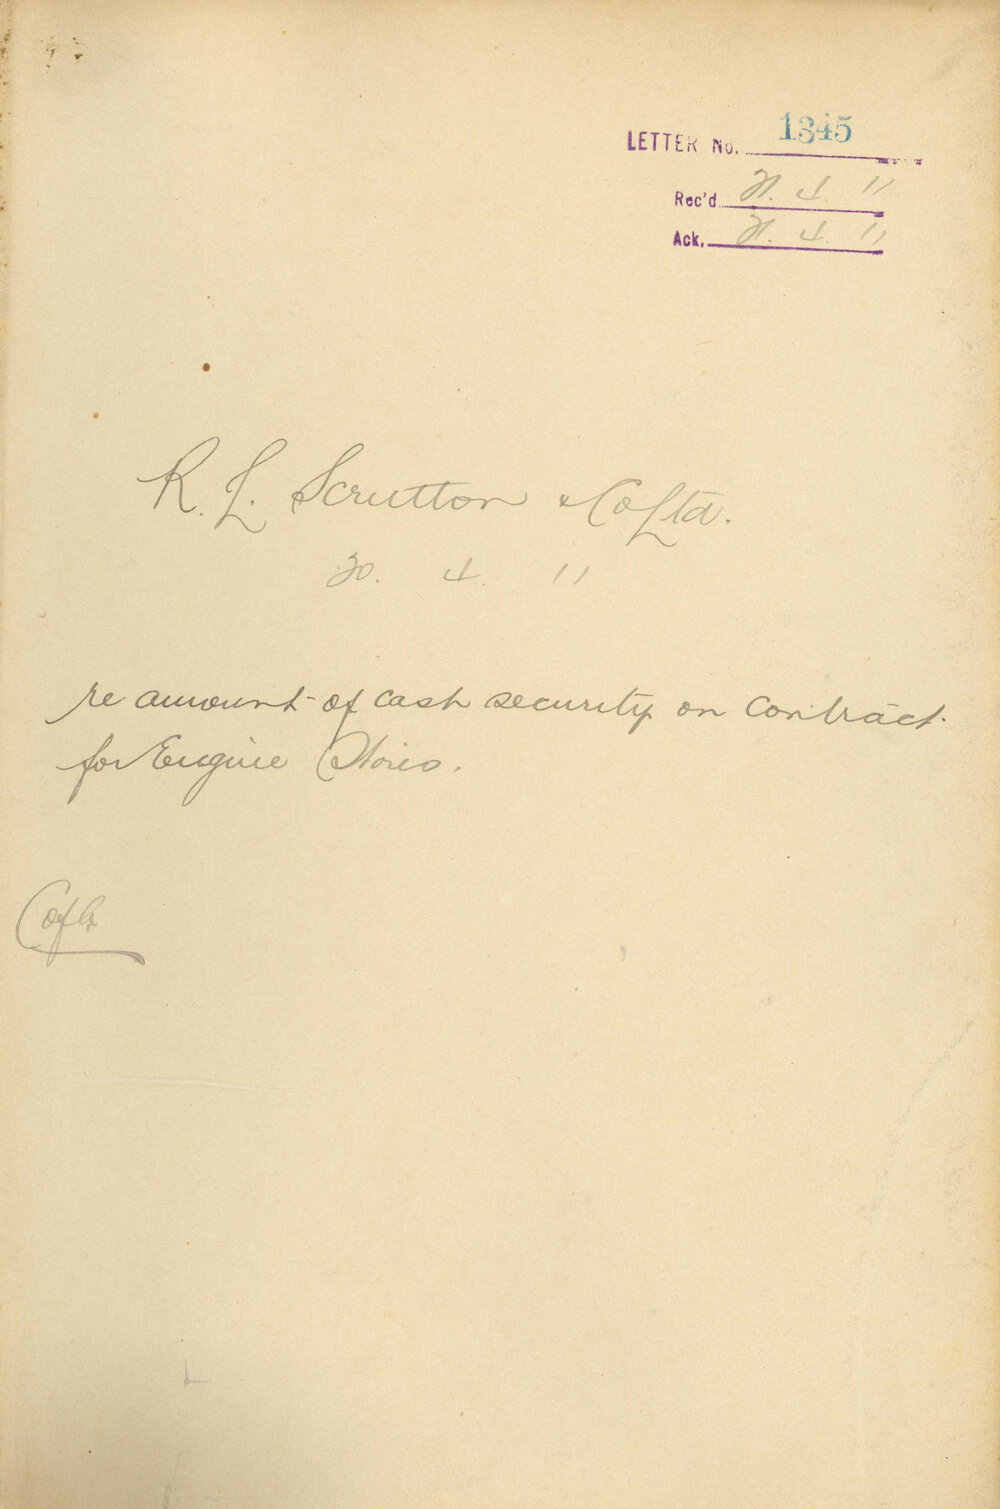 LETTER No. 1345
Rec'd 21. 4. 11
Ack. 21. 4. 11
R. L. Scrutton & Co Ltd.
20. 4. 11
re amount of cash security on contract
for Engine Stores.